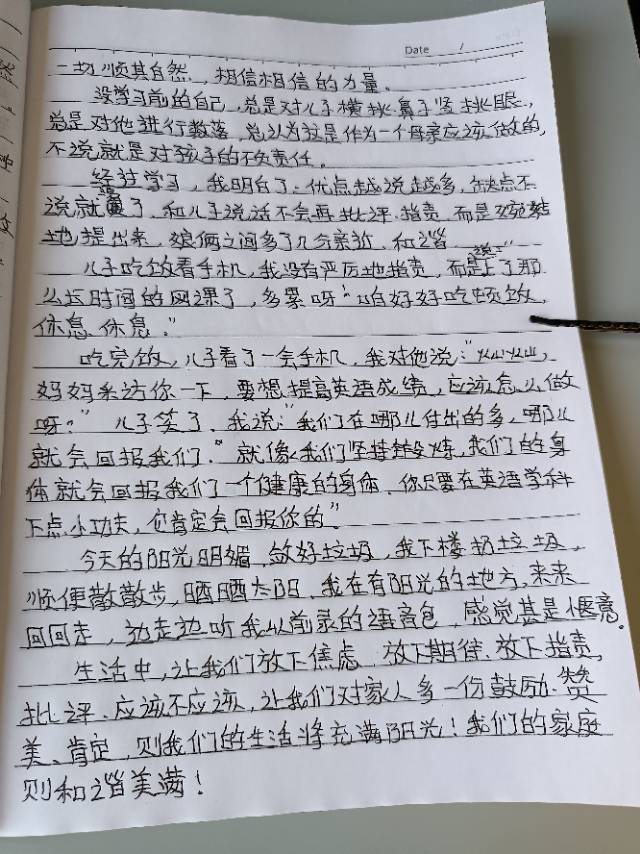 Date /
一切顺其自然，相信相信的力量。
没学习前的自己，总是对儿子横挑鼻子竖挑眼，
总是对他进行数落，总认为这是作为一个母亲应该做的，
不说就是对孩子的不负责任。
经过学习，我明白了。优点越说越多，缺点不
说就没了，和儿子说话不会再批评、指责，而是婉转
地提出来，娘俩之间多了几分亲近、和谐
儿子吃饭看手机，我没有严厉地指责，而是说：“上了那
么长时间的网课了，多累呀！咱好好吃顿饭，
休息休息。”
吃完饭，儿子看了一会手机，我对他说：“
妈妈采访你一下，要想提高英语成绩，应该怎么做
呀？”儿子笑了，我说：“我们在哪儿付出的多，哪儿
就会回报我们。”就像我们坚持锻炼，我们的身
体就会回报我们一个健康的身体，你只要在英语学科
下点小功夫，它肯定会回报你的”
今天的阳光明媚，敛好垃圾，我下楼扔垃圾，
顺便散散步，晒晒太阳，我在有阳光的地方，来来
回回走，边走边听我以前录的语音包，感觉甚是惬意。
生活中，让我们放下焦虑 放下期待、放下指责，
批评、应该不应该，让我们对家人多一份鼓励、赞
美、肯定，则我们的生活将充满阳光！我们的家庭
则和谐美满！